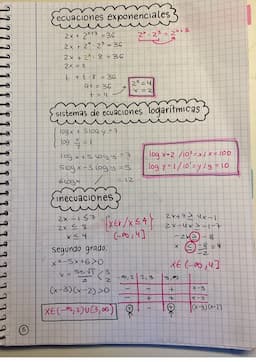 ecuaciones exponenciales
2x + 2^x+3 = 36
2^a · 2^b = 2^a+b
2x + 2^x · 2^3 = 36
2x + 2^x · 8 = 36
2x = t
t + t · 8 = 36
9t = 36
t = 4
2^x = 4
x = 2
sistemas de ecuaciones logarítmicas
log x + 5 log y = 7
log x/y = 1
log x + 5 log y = 7
5 log x - 5 log y = 5
6 log x = 12
log x = 2 / 10² = x / x = 100
log y = 1 / 10¹ = y / y = 10
inecuaciones
2x - 1 ≤ 7
2x ≤ 8
x ≤ 4
{x ∈ R / x ≤ 4}
(-∞, 4]
2x + 7 ≥ 4x - 1
2x - 4x ≥ -1 - 7
-2x ≥ -8
x ≤ -8/-2 = 4
x ∈ (-∞, 4]
Segundo grado:
x² - 5x + 6 > 0
x = 5 ± √1 / 2 < 3 2
(x-3)(x-2) > 0
x ∈ (-∞, 2) ∪ (3, ∞)
-∞, 2 2, 3 3, ∞
- - + x-3
- + + x-2
+ - + (x-3)(x-2)